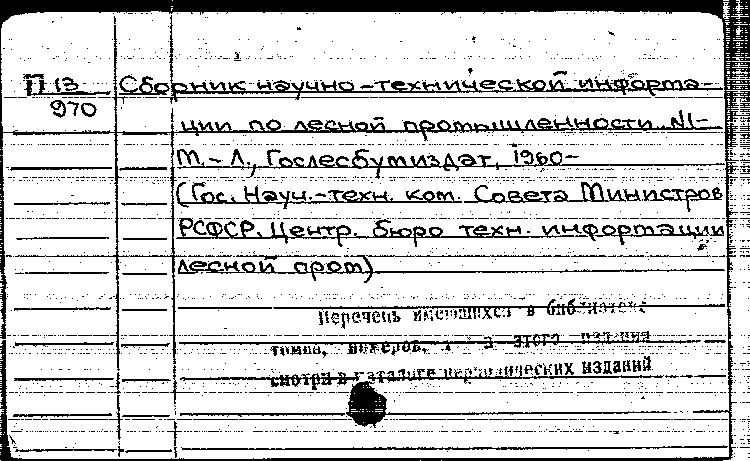 П 13 Сборник научно-технической информа-
970
ции по лесной промышленности. N1-
М.-Л., Гослесбумиздат, 1960-
(Гос. Науч.-техн. ком. Совета Министров
РСФСР. Центр. бюро техн. информации
лесной пром)
Перечень имеющихся в библиотеке
томов, номеров, этого издания
смотри в каталоге периодических изданий